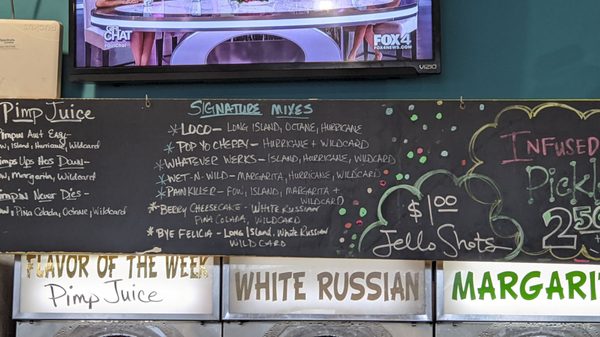 CHAT
FOX 4
FOX4NEWS.COM
VIZIO
PIMP JUICE
SIGNATURE MIXES
LOCO - LONG ISLAND, OCTANE, HURRICANE
POP YO CHERRY - HURRICANE + WILDCARD
WHATEVER WERKS - ISLAND, HURRICANE, WILDCARD
WET-N-WILD - MARGARITA, HURRICANE, WILDCARD
PAINKILLER - FOW, ISLAND, MARGARITA +
WILDCARD
BERRY CHEESECAKE - WHITE RUSSIAN
PINA COLADA, WILDCARD
BYE FELICIA - LONG ISLAND, WHITE RUSSIAN
WILD CARD
AINT EASY -
ISLAND, HURRICANE, WILDCARD
UPS HOS DOWN -
MARGARITA, WILDCARD
NEVER DIES -
PINA COLADA, OCTANE, WILDCARD
$1.00
Jello Shots
INFUSED
Pickle
2.50
FLAVOR OF THE WEEK
Pimp Juice
WHITE RUSSIAN
MARGARI